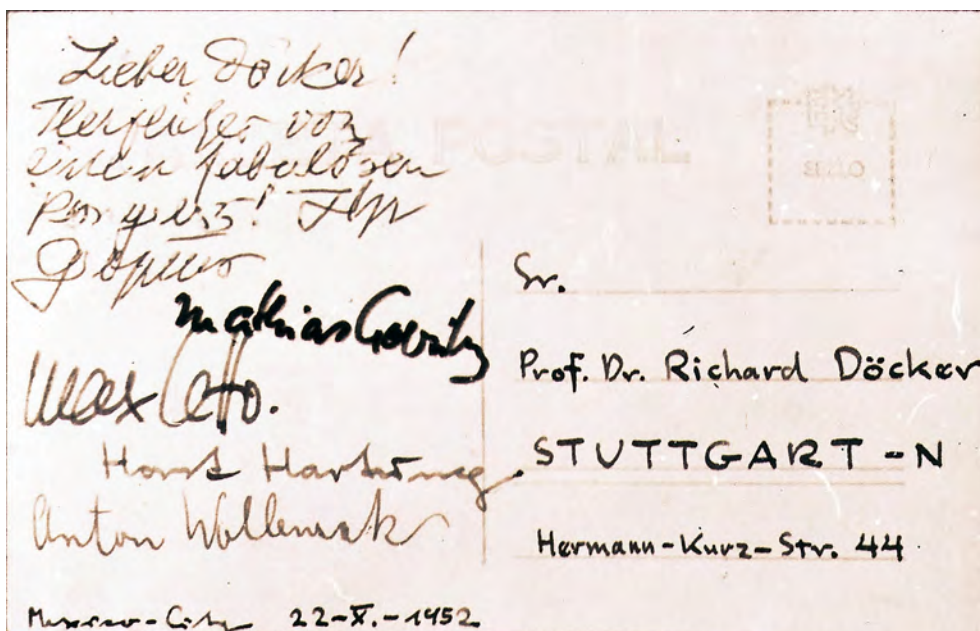 Lieber Döcker!
von
einem fabulösen
Kongress! Ihr
Gropius
Mathias Goeritz
Max Cetto.
Horst Hartung.
Anton
Mexico-City 22-X.-1952
POSTAL
Sr.
Prof. Dr. Richard Döcker
STUTTGART-N
Hermann-Kurz-Str. 44